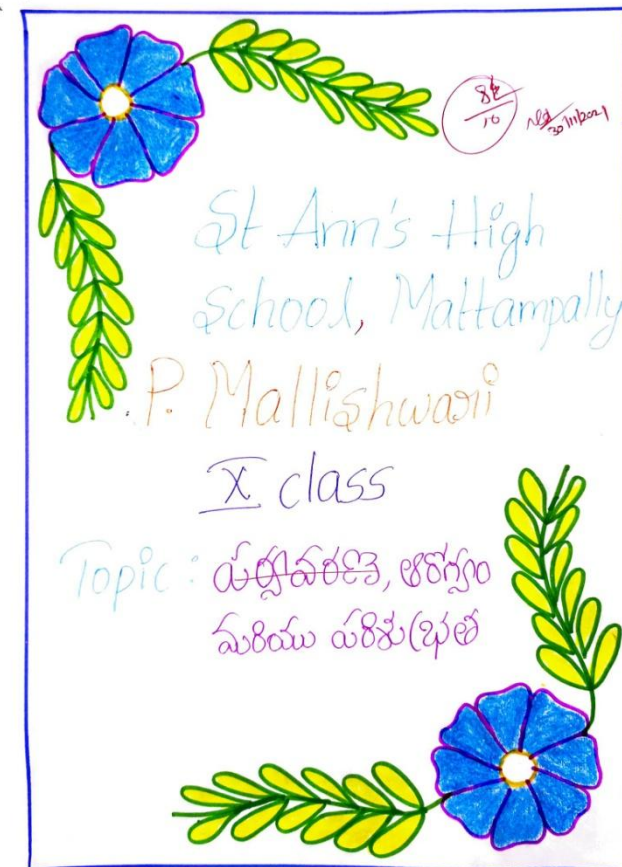 8½/10
30/11/2021
St Ann's High
School, Mattampally
P. Mallishwari
X class
Topic : పర్యావరణ, ఆరోగ్యం
మరియు పరిశుభ్రత